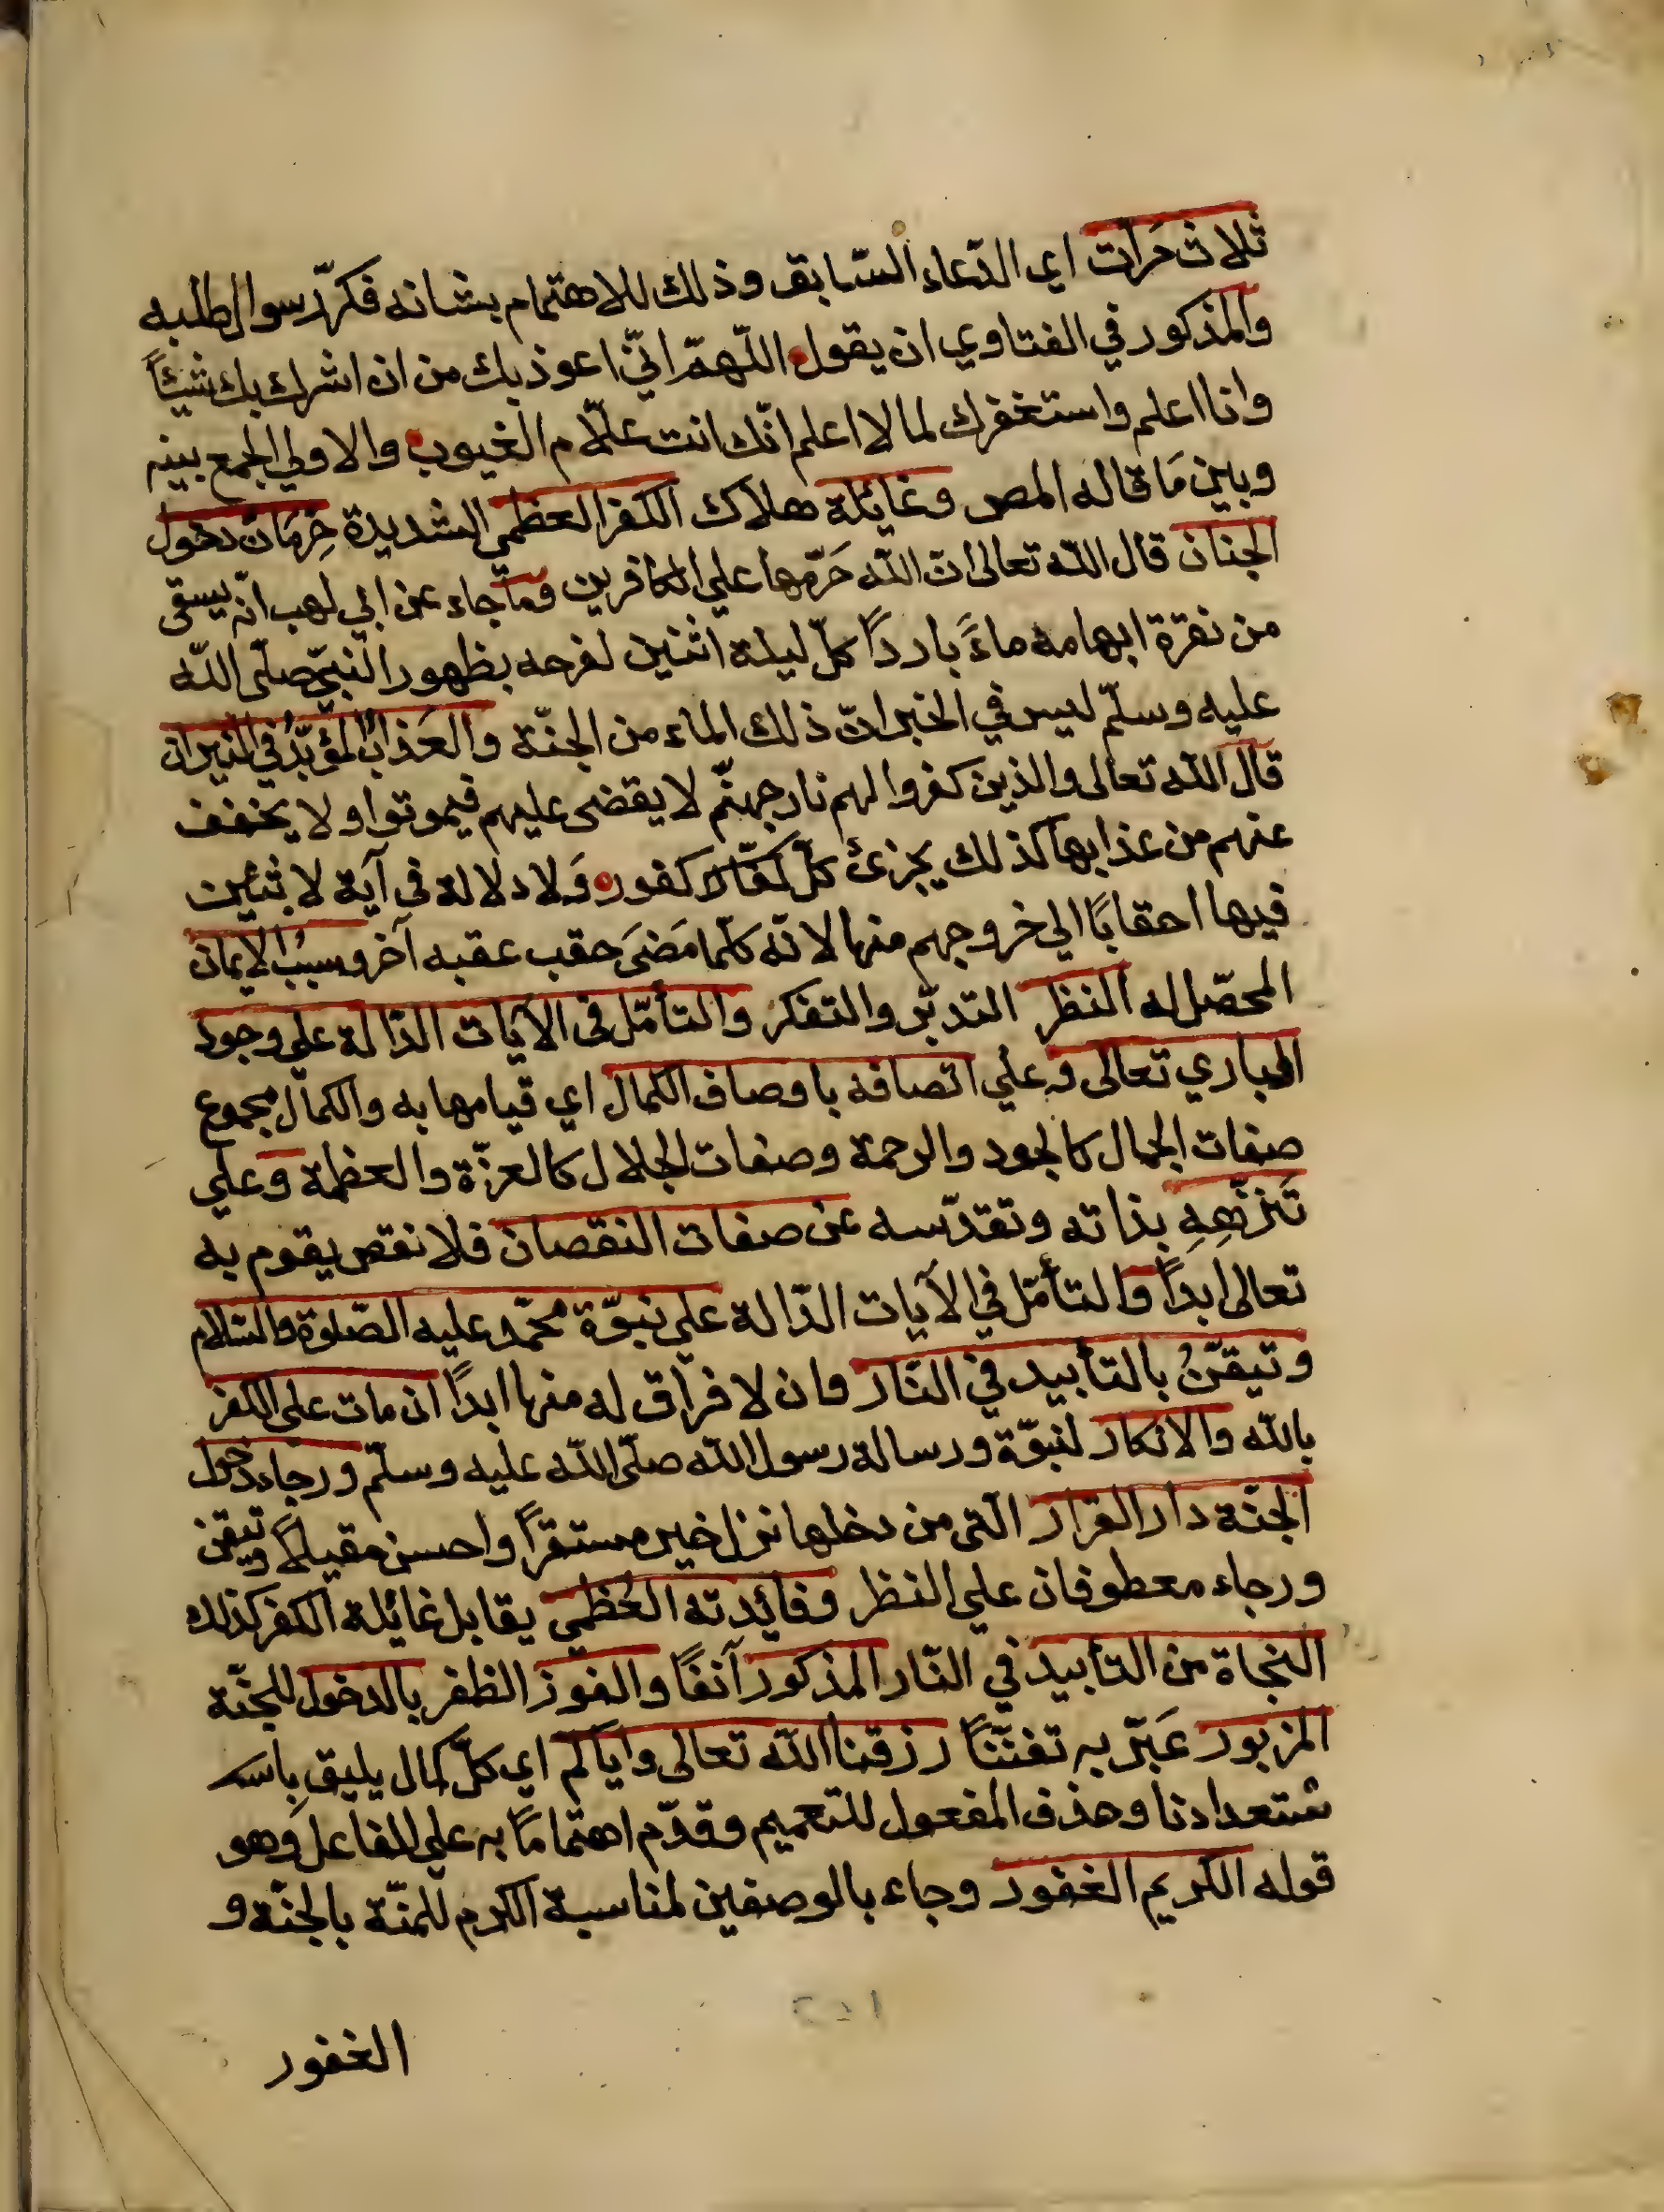 ثلاث مَرات اي الدّعاء السّابق وذلك للاهتمام بشانه فكرّر سوال طلبه
والمذكور في الفتاوي ان يقول اللّهمّ انّي اعوذ بك من ان اشرك بك شيئاً
وانا اعلم واستغفرك لما لا اعلم انّك انت علّام الغيوب والاولي الجمع بينه
وبين مَا قاله المص وغائلة هلاك الكفر العظمي الشديدة حِرمَان دخول
الجنان قال الله تعالى انّ الله حَرّمها علي الكافرين وما جاء عن ابي لهب انّه يسقى
من نقرة ابهامه ماءً بارداً كلّ ليلة اثنين لفرحه بظهور النّبيّ صلّى اللّه
عليه وسلّم ليس في الخبر انّ ذلك الماء من الجنّة والعَذابُ المؤبّدُ في النيران
قال الله تعالى والذين كفروا لهم نار جهنّم لا يقضى عليهم فيموتوا ولا يخفف
عنهم من عذابها كذلك يجزئ كلّ كفّار كفور وَلا دلالة في آية لابثين
فيها احقابًا الي خروجهم منها لانّه كلّما مَضىَ حقب عقبه آخر وسببُ الايمان
المحصّل له النظر التدبّر والتفكر والتأمّل في الآيات الدّالة علي وجود
الباري تعالى وعلي اتصافه باوصاف الكمال اي قيامها به والكمال مجموع
صفات الجمال كالجود والرحمة وصفات الجلال كالعزّة والعظمة وعلي
تَنزّهِهِ بذاته وتقدّسه عن صفات النقصان فلا نقص يقوم به
تعالى ابداً والتأمّل في الآيات الدّالة علي نبوّة محمّد عليه الصّلوة والسّلام
وتيقّنُ بالتأبيد في النّار وان لا فراق له منها ابدًا ان مات علي الكفر
بالله والانكار لنبوّة ورسالة رسول الله صلّى الله عليه وسلّم ورجاء دخول
الجنّة دار القرار الّتي من دخلها نزل خير مستقراً واحسن مقيلاً وتيقن
ورجاء معطوفان علي النظر وفائدته العُظمي يقابل غائلة الكفر كذلك
النجاة من التأبيد في النّار المذكور آنفًا والفوز الظفر بالدخول للجنّة
المزبور عَبّر به تفنّناً رزقنا اللّه تعالى واياكم اي كلّ كمال يليق باسـ
ستعدادنا وحذف المفعول للتعميم وقدّم اهتمامًا به علي الفاعل وهو
قوله الكريم الغفور وجاء بالوصفين لمناسبة الكرم للمنّة بالجنّة و
الغفور